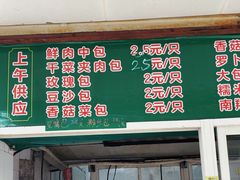 上午供应
鲜肉中包 2.5元/只
干菜夹肉包 2.5元/只
玫瑰包 2元/只
豆沙包 2元/只
香菇菜包 2元/只
香菇
萝卜
大包
糯米
南